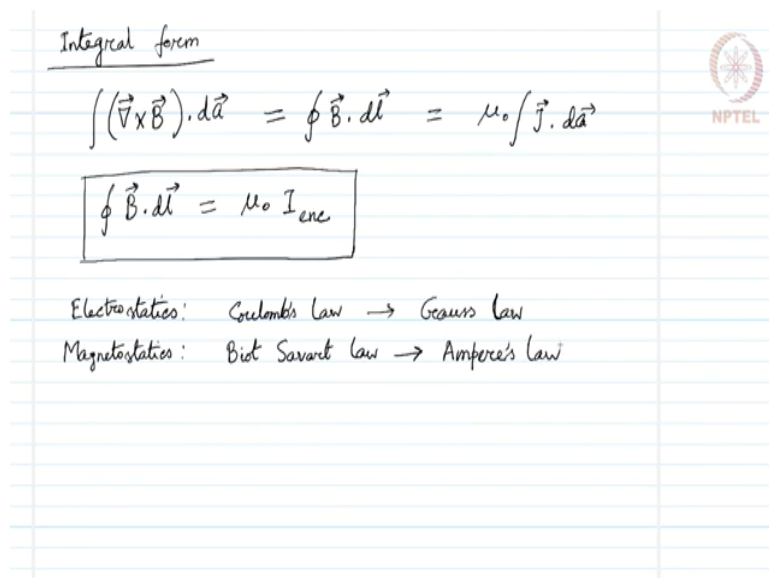 Integral form
NPTEL
∫(∇⃗×B⃗).da⃗ = ∮B⃗.dl⃗ = μ₀∫J⃗.da⃗
∮B⃗.dl⃗ = μ₀ I_enc
Electrostatics: Coulomb's law → Gauss law
Magnetostatics: Biot Savart law → Ampere's law